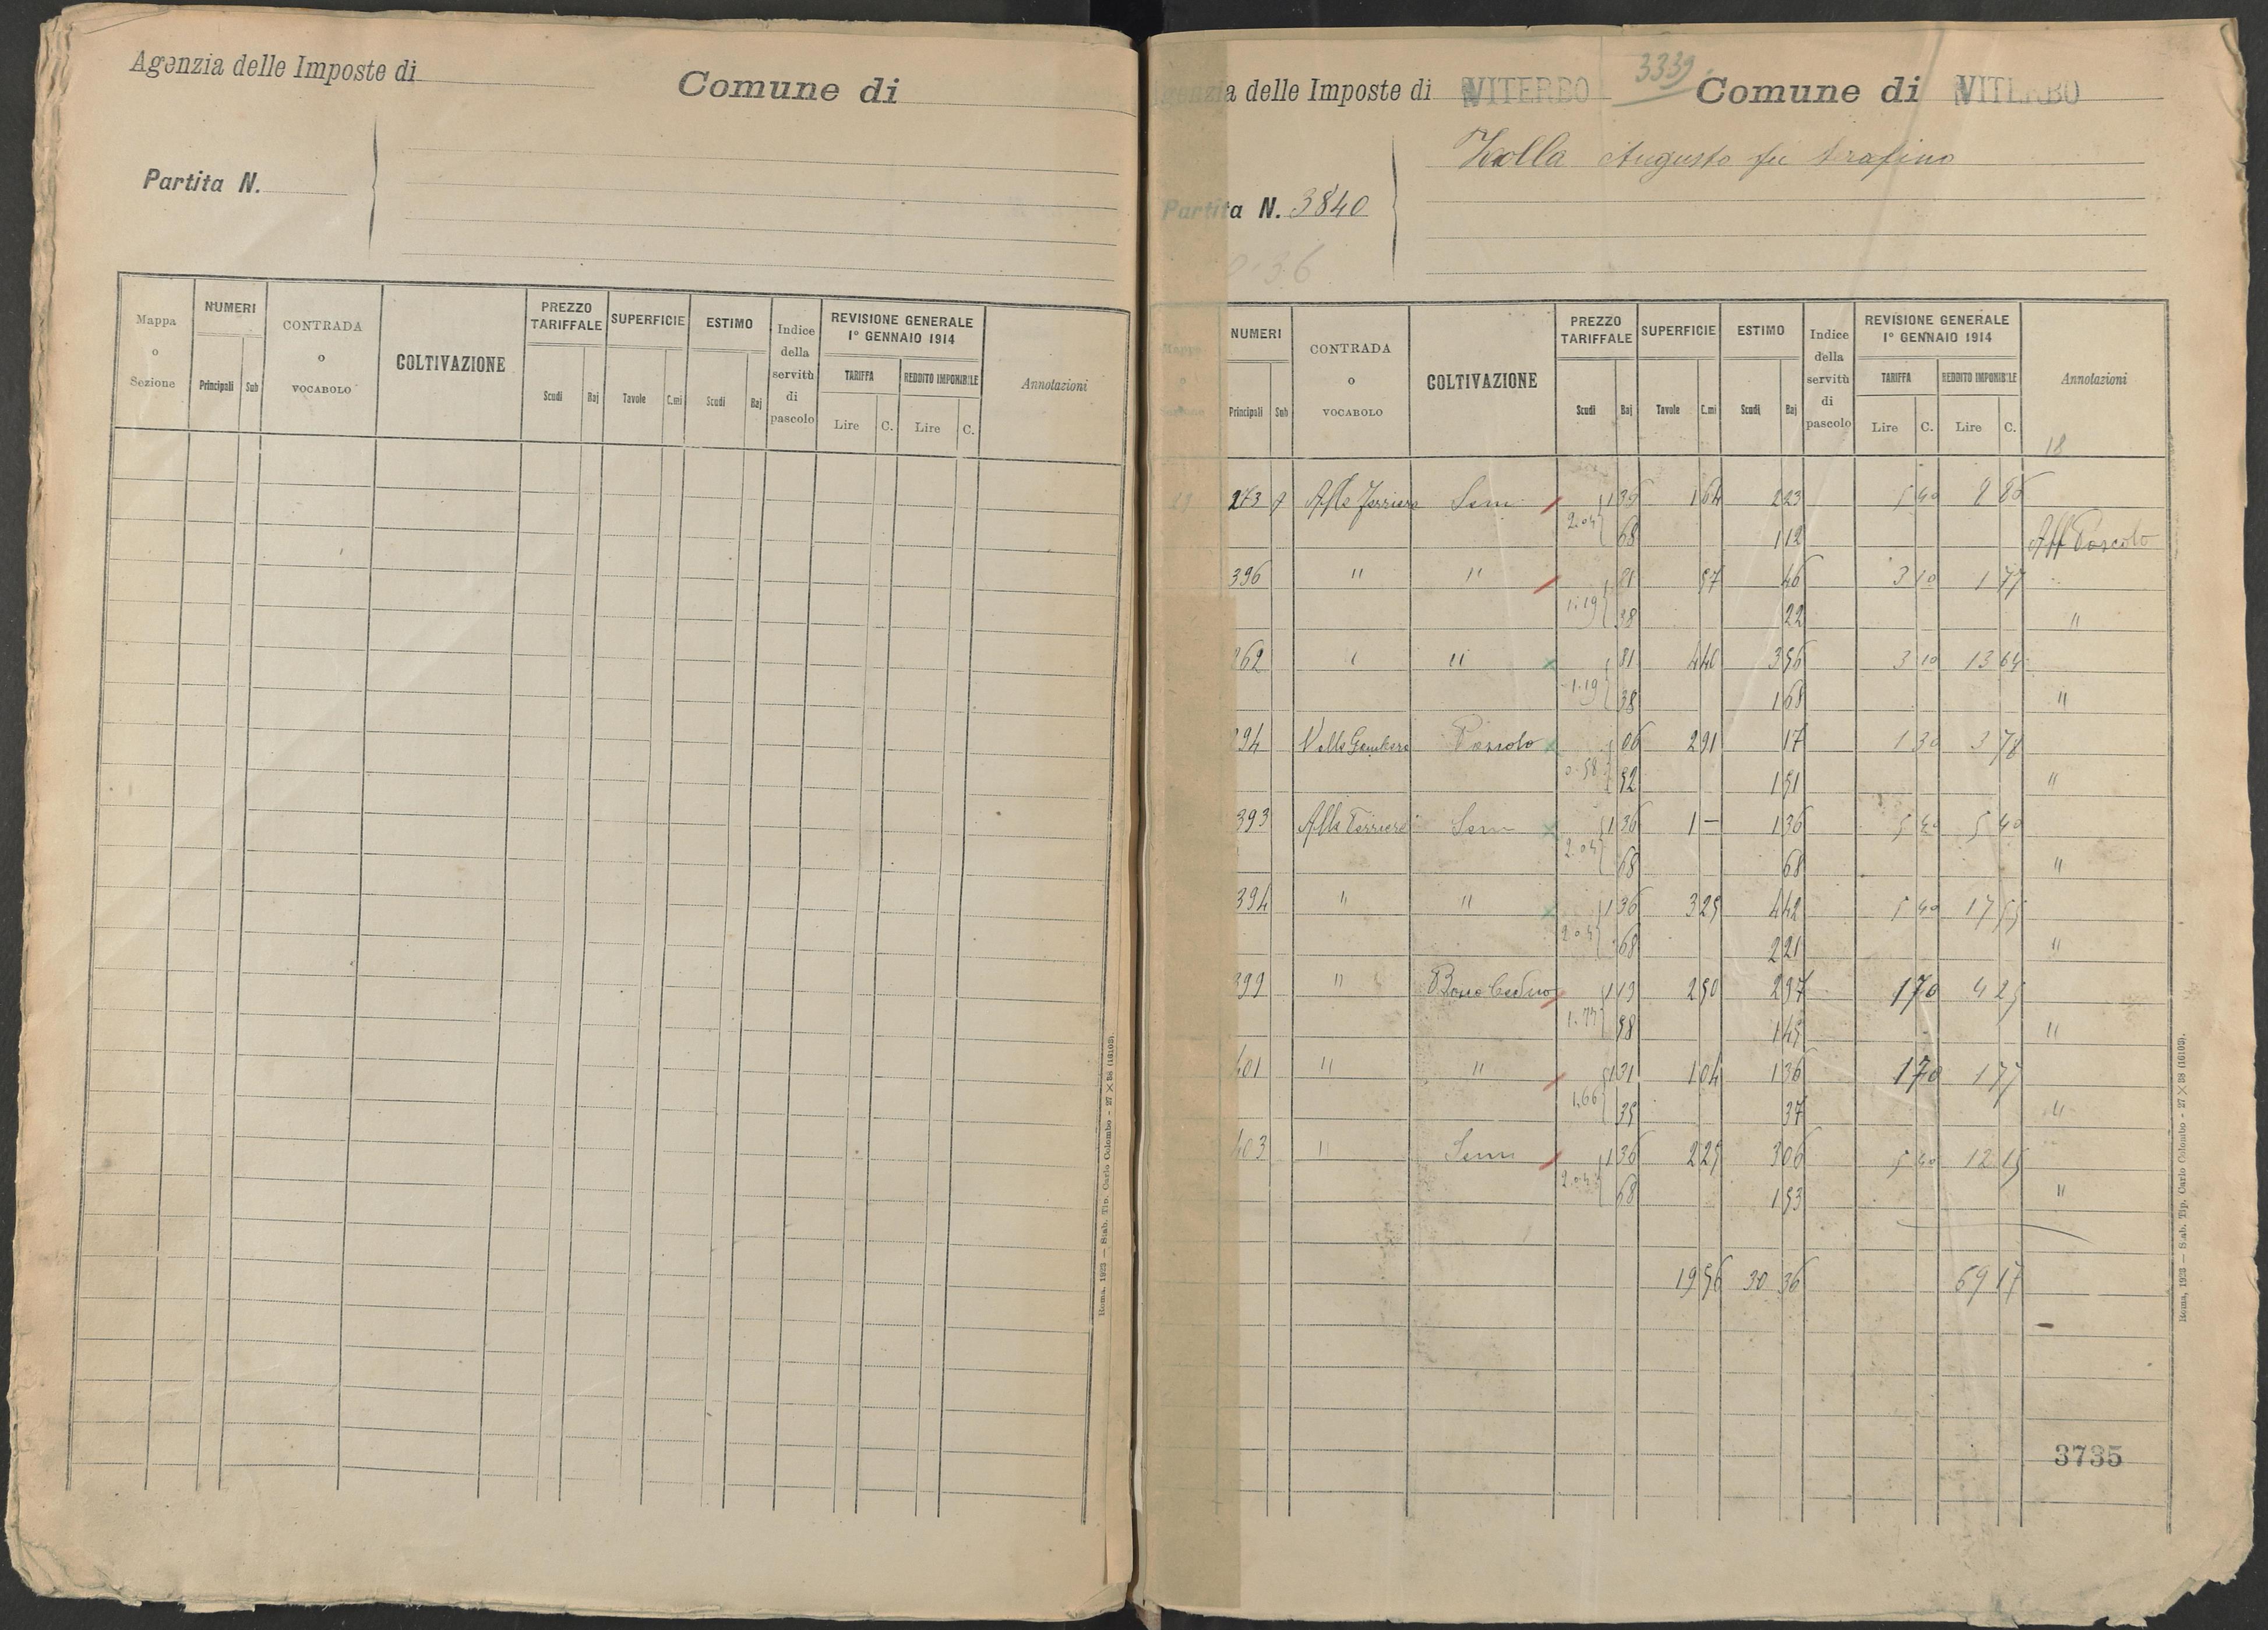 Agenzia delle Imposte di
Comune di
Partita N.
Mappa o Sezione | NUMERI Principali Sub | CONTRADA o VOCABOLO | COLTIVAZIONE | PREZZO TARIFFALE Scudi Baj | SUPERFICIE Tavole C.mi | ESTIMO Scudi Baj | Indice della servitù di pascolo | REVISIONE GENERALE 1° GENNAIO 1914 TARIFFA Lire C. REDDITO IMPONIBILE Lire C. | Annotazioni
Roma, 1923 — Stab. Tip. Carlo Colombo - 27 × 38 (16103).
3339
Agenzia delle Imposte di VITERBO Comune di VITERBO
Augusto fu Serafino
Partita N. 3840
Mappa o Sezione | NUMERI Principali Sub | CONTRADA o VOCABOLO | COLTIVAZIONE | PREZZO TARIFFALE Scudi Baj | SUPERFICIE Tavole C.mi | ESTIMO Scudi Baj | Indice della servitù di pascolo | REVISIONE GENERALE 1° GENNAIO 1914 TARIFFA Lire C. REDDITO IMPONIBILE Lire C. | Annotazioni
18
273 Alle Ferriere Sem 1 36 1 64 2 23 5 40 8 86
2.04 68 1 12 Aff Pascolo
396 " " 81 57 46 3 10 1 77
1.19 38 22 "
262 " " 81 4 40 3 56 3 10 13 64
1.19 38 1 68 "
294 Valle Gambara Pascolo 06 2 91 17 1 30 3 78
0.58 52 1 51 "
393 Alle Ferriere Sem 1 36 1 — 1 36 5 40 5 40
2.04 68 68 "
394 " " 1 36 3 25 4 42 5 40 17 55
2.04 68 2 21 "
399 " Bosco Ceduo 1 19 2 50 2 97 1 70 4 25
1.77 58 1 45 "
401 " " 1 31 1 04 1 36 1 70 1 77
1.66 35 37 "
403 " Sem 1 36 2 25 3 06 5 40 12 15
2.04 68 1 53 "
19 56 30 36 69 17
3735
Roma, 1923 — Stab. Tip. Carlo Colombo - 27 × 38 (16103).